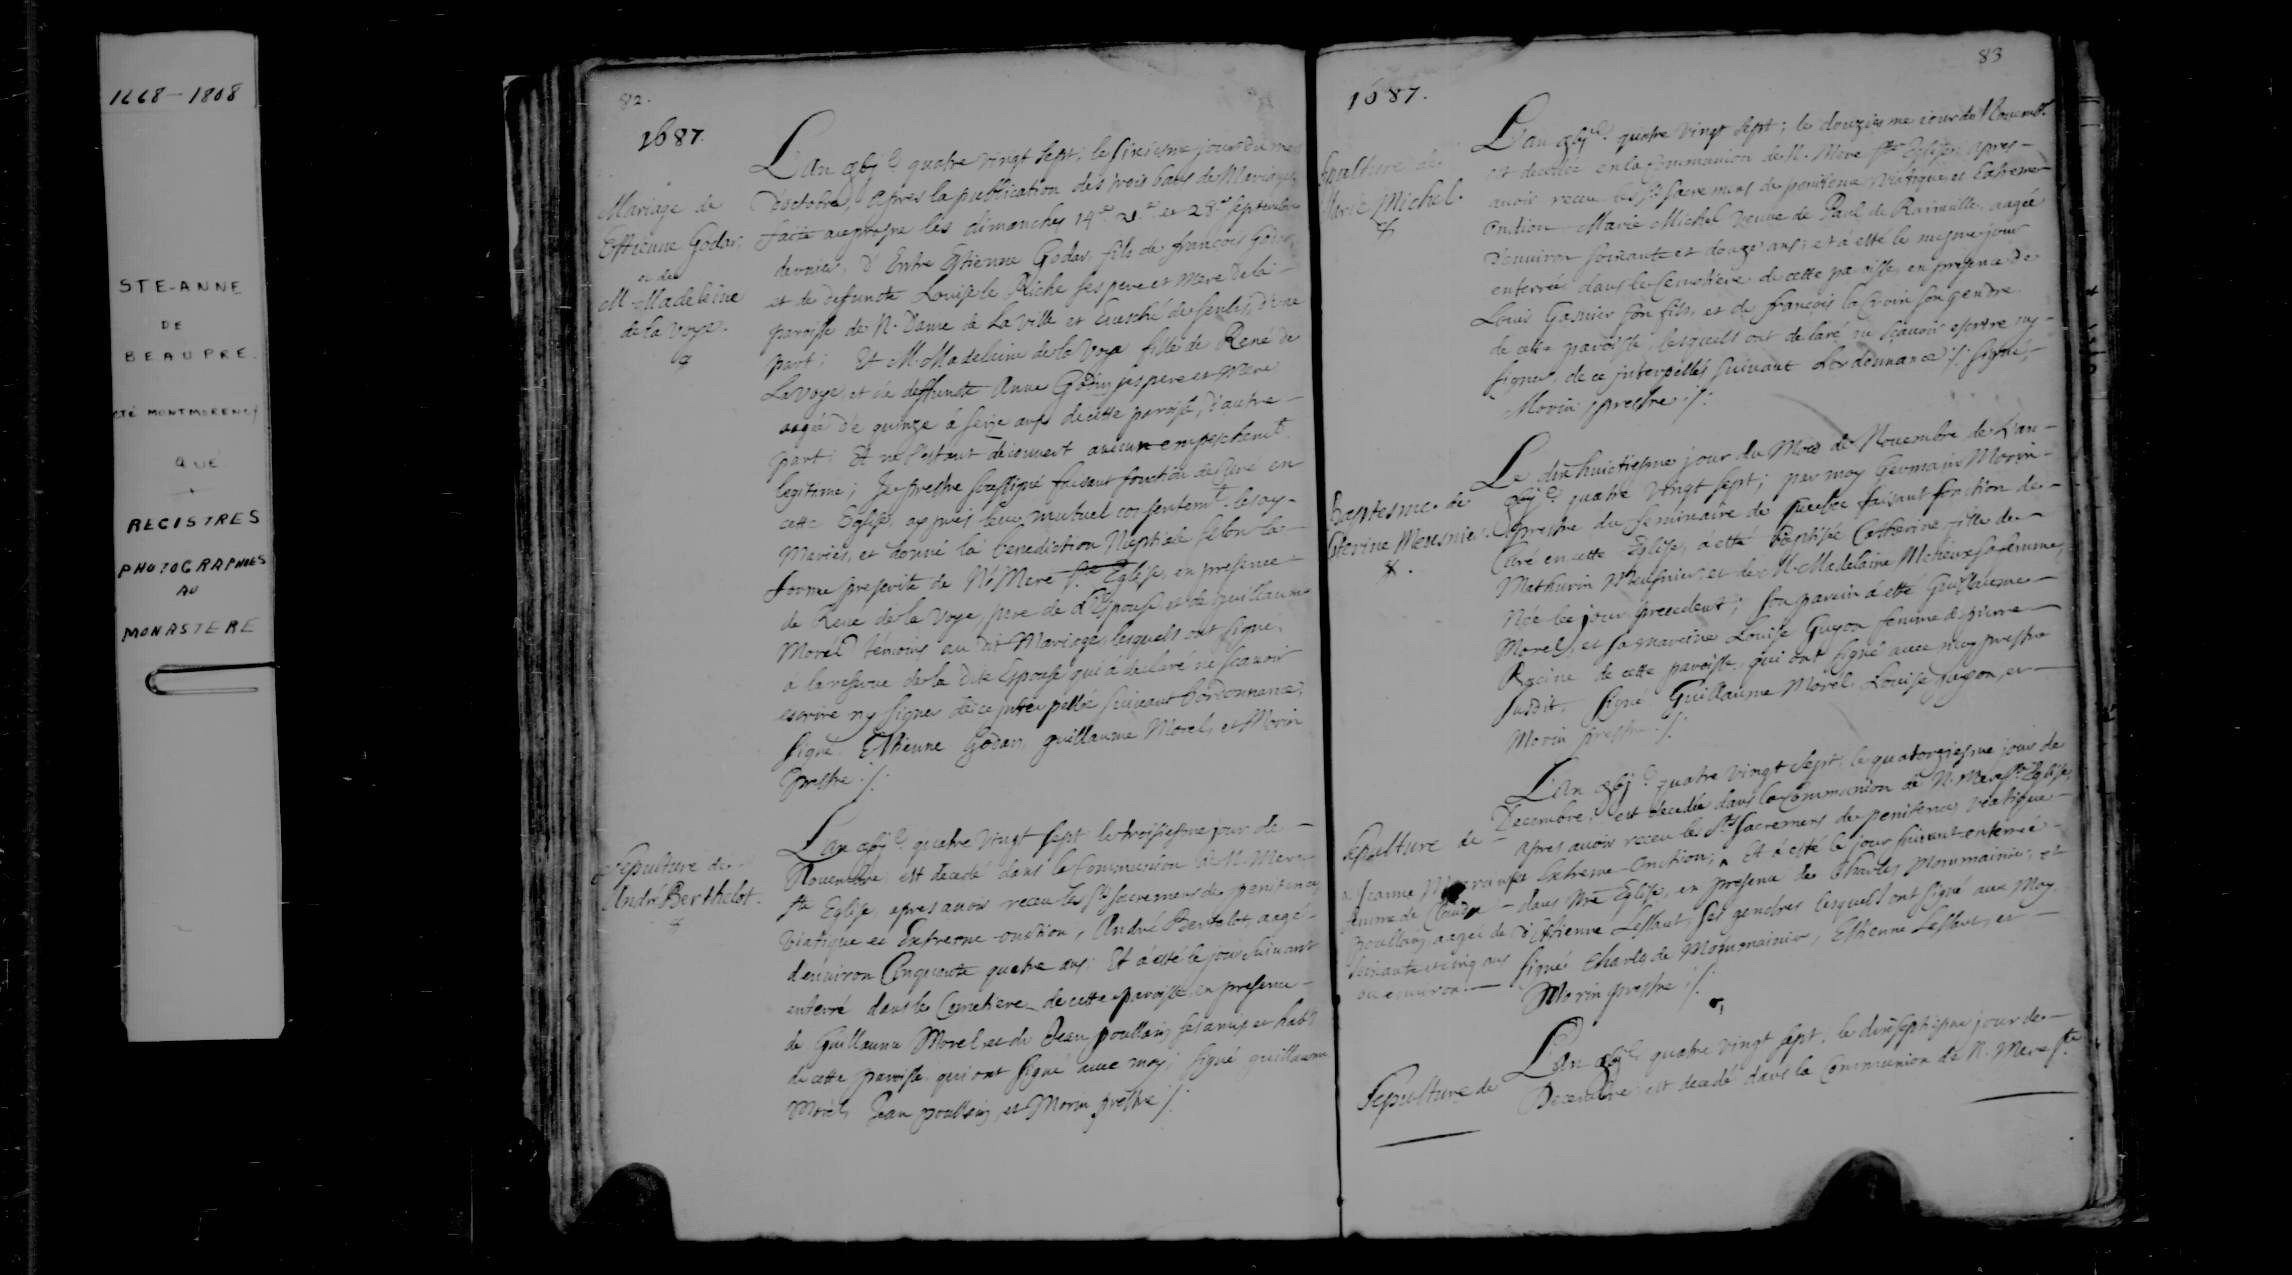 1668-1808
STE-ANNE
DE
BEAUPRE.
CTÉ MONTMORENCY
QUÉ
REGISTRES
PHOTOGRAPHIES
AU
MONASTERE
82.
1687.
Mariage de
Estienne Godar
et de
M. Madeleine
de la Voye.
L'an gbjc quatre vingt sept; le sixiesme jour du mois
d'octobre, apres la publication des trois bans de Mariage
faite au prosne les dimanches 14e 21e et 28e septembre
dernier, d'Entre Estienne Godar, fils de francois Godar,
et de deffuncte Louise le Riche ses pere et mere de la
paroisse de N. Dame de la ville et Evesché de Senlis, d'une
part; Et M. Madeleine de la Voye fille de René de
la Voye, et de deffuncte Anne Godin ses pere et mere
aagée de quinze à seize ans de cette paroisse, d'autre
part; Et ne s'estant découvert aucun empeschemt
legitime; Je prestre soussigné faisant fonction de Curé en
cette Eglise, ay pris leur mutuel consentemt les ay
Mariés, et donné la benediction Nuptiale selon la
forme prescrite de Nre Mere Ste Eglise, en presence
de René de la Voye, pere de l'Epouse, et de guillaume
Morel témoins au dit Mariage, lesquels ont signé,
à la reserve de la dite Epouse qui à declaré ne scavoir
escrire ny signer de ce interpellée suivant l'ordonnance,
signé Estienne Godar, guillaume Morel, et Morin
prestre ./.
Sepulture de
André Berthelot.
L'an gbjc quatre vingt sept le troisiesme jour de
Novembre est decedé dans la Communion de N. Mere
Ste Eglise, apres avoir receu les Sts sacremens de penitence,
viatique et Extreme-onction, André Bertelot, aagé
d'environ Cinquante quatre ans; Et à esté le jour suivant
enterré dans le Cemetiere de cette paroisse en presence
de Guillaume Morel et de Jean poullain, ses amis et habts
de cette paroisse qui ont signé avec moy; signé guillaume
Morel, Jean poullain, et Morin prestre ./.
83
1687.
Sepulture de
Marie Michel.
L'an gbjc quatre vingt sept; le douziesme jour de Novembre
est decedée en la Communion de N. Mere Ste Eglise, apres
avoir receu les Sts Sacremens de penitence, viatique, et Extreme
onction Marie Michel veuve de Paul de Rainville, aagée
d'environ soixante et douze ans; et à esté le mesme jour
enterrée dans le Cemetiere de cette paroisse en presence de
Louis Gasnier son fils, et de francois la Croix son gendre
de cette paroisse, lesquels ont declaré ne scavoir escrire ny
signer, de ce interpellés suivant L'ordonnance ./. signé,
Morin prestre ./.
Baptesme de
Caterine Meusnier.
Le dixhuictiesme jour du Mois de Novembre de l'an
gbjc quatre vingt sept; par moy Germain Morin
prestre du seminaire de quebec faisant fonction de
Curé en cette Eglise, à esté baptisée Catherine fille de
Mathurin Meusnier, et de M. Madelaine Meheux sa femme,
Née le jour precedent; son parein à esté Guillaume
Morel, et sa mareine Louise Guyon femme de pierre
Racine de cette paroisse, qui ont signé avec moy prestre
susdit, signé Guillaume Morel, Louise guyon, et
Morin prestre ./.
Sepulture de
Jeanne
femme de Claude
poullain, aagée de
soixante et cinq ans
ou environ.
L'an gbjc quatre vingt sept, le quatorziesme jour de
Decembre, est decedée dans la Communion de N. Mere Ste Eglise,
apres avoir receu les Sts Sacremens de penitence, viatique
et Extreme-onction; Et à esté le jour suivant enterrée
dans Nre Eglise, en presence de Charles Pommainvil, et
d'Estienne Lessart, ses gendres lesquels ont signé avec moy,
signé Charles de Pommainvil, Estienne Lessart, et
Morin prestre ./.
Sepulture de
L'an gbjc quatre vingt sept, le dixseptiesme jour de
Decembre est decedé dans la Communion de N. Mere Ste